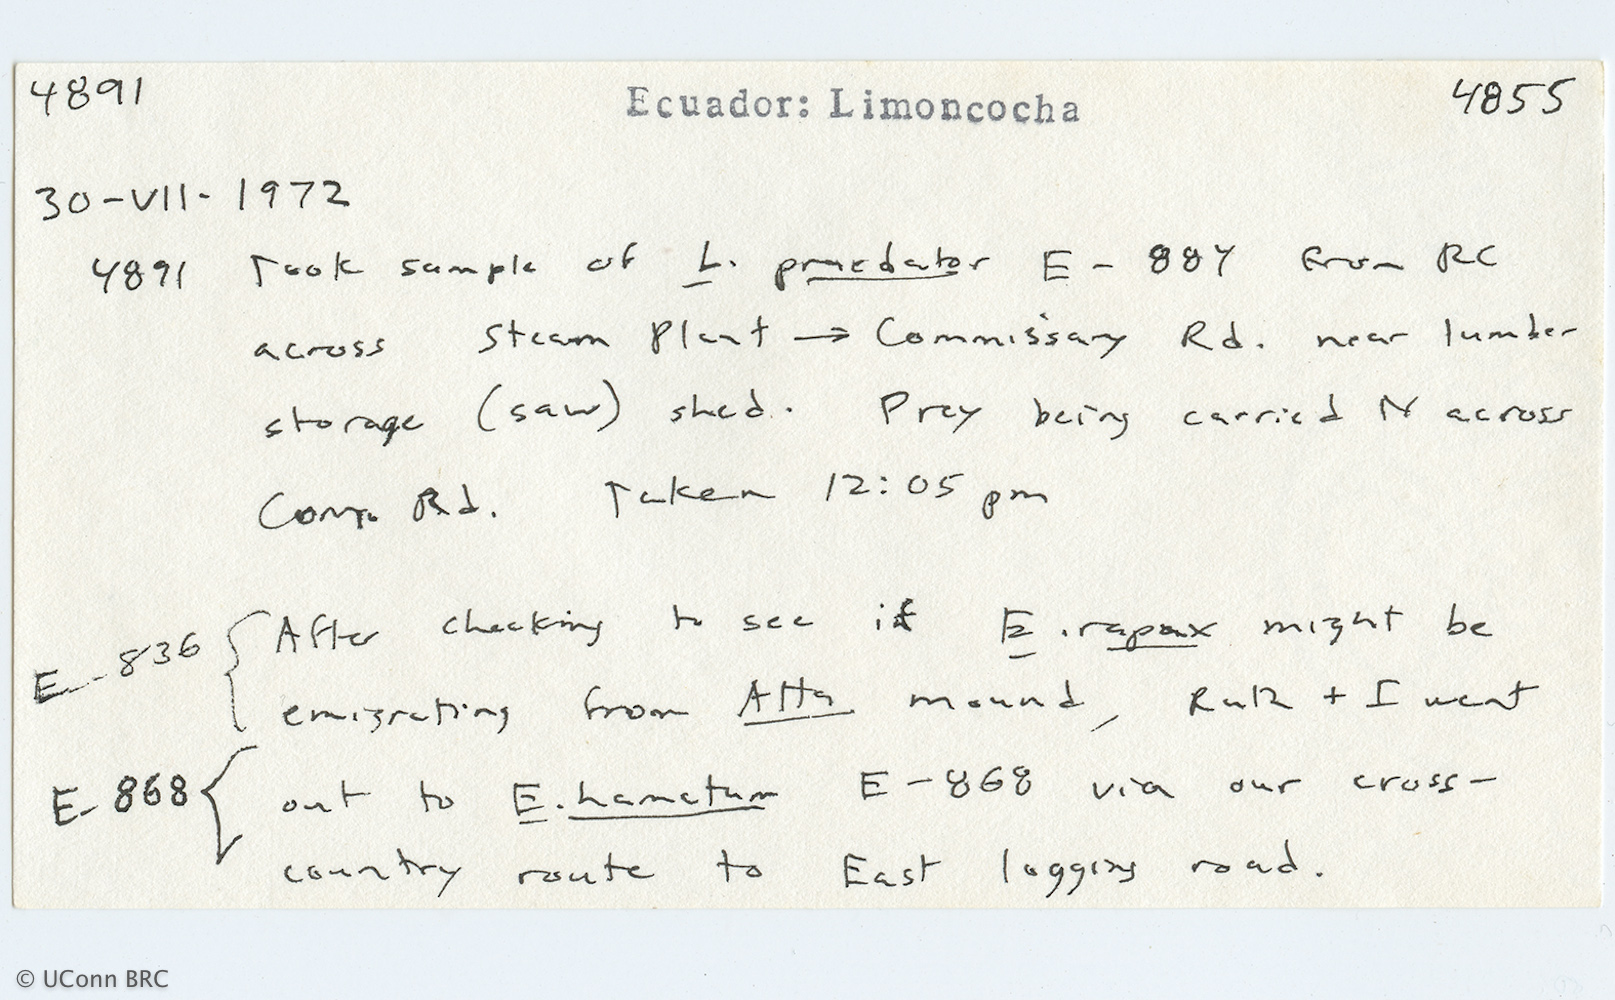 4891 Ecuador: Limoncocha 4855
30-VII-1972
4891 Took sample of L. praedator E-884 from RC
across Steam Plant → Commissary Rd. near lumber
storage (saw) shed. Prey being carried N across
Comm. Rd. Taken 12:05 pm
E-836 { After checking to see if E. rapax might be
emigrating from Atta mound, Ruth + I went
E-868 { out to E. hamatum E-868 via our cross-
country route to East logging road.
© UConn BRC